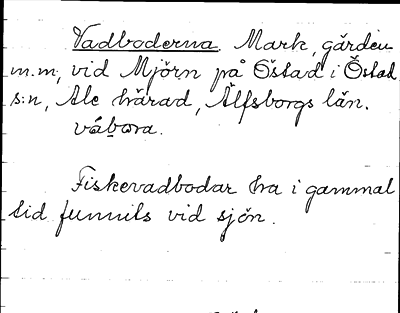 Vadboderna. Mark, gärden
m.m, vid Mjörn på Östad i Östad
s:n, Ale härad, Älfsborgs län.
Fiskevadbodar ha i gammal
tid funnits vid sjön.